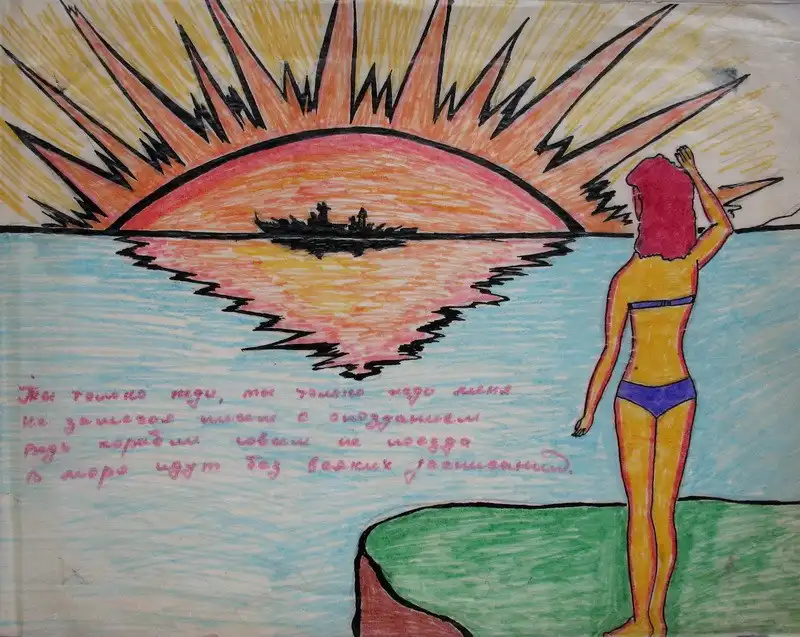 Ты только жди, ты только жди меня
не замечая писем с опозданием
ведь корабли совсем не поезда
в море идут без всяких расписаний.